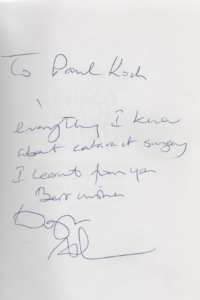 To Paul Koch
everything I know
about cataract surgery
I learnt from you
Best wishes